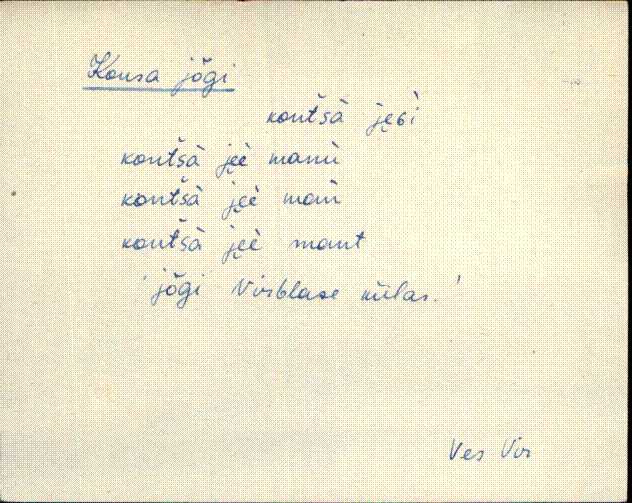 Konsa jõgi
kontšà je̮ɢì
kontšà je̮è manù
kontšà je̮è maǹ
kontšà je̮è mant
'jõgi Virblase külas.'
Ves Vir